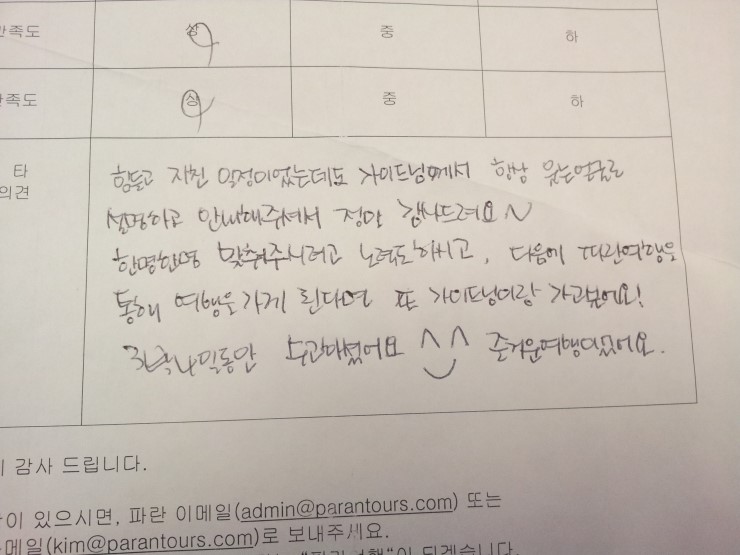 만족도 상 중 하
만족도 상 중 하
타
의견
힘들고 지친 일정이었는데도 가이드님께서 항상 웃는얼굴로
설명하고 안내해주셔서 정말 감사드려요~
한명한명 맞춰주시려고 노력도하시고, 다음에 파란여행을
통해 여행을가게 된다면 또 가이드님이랑 가고싶어요!
3박4일동안 수고하셨어요 ^^ 즐거운여행이었어요.
감사 드립니다.
이 있으시면, 파란 이메일(admin@parantours.com) 또는
메일(kim@parantours.com)로 보내주세요.
"파란여행"이 되겠습니다.